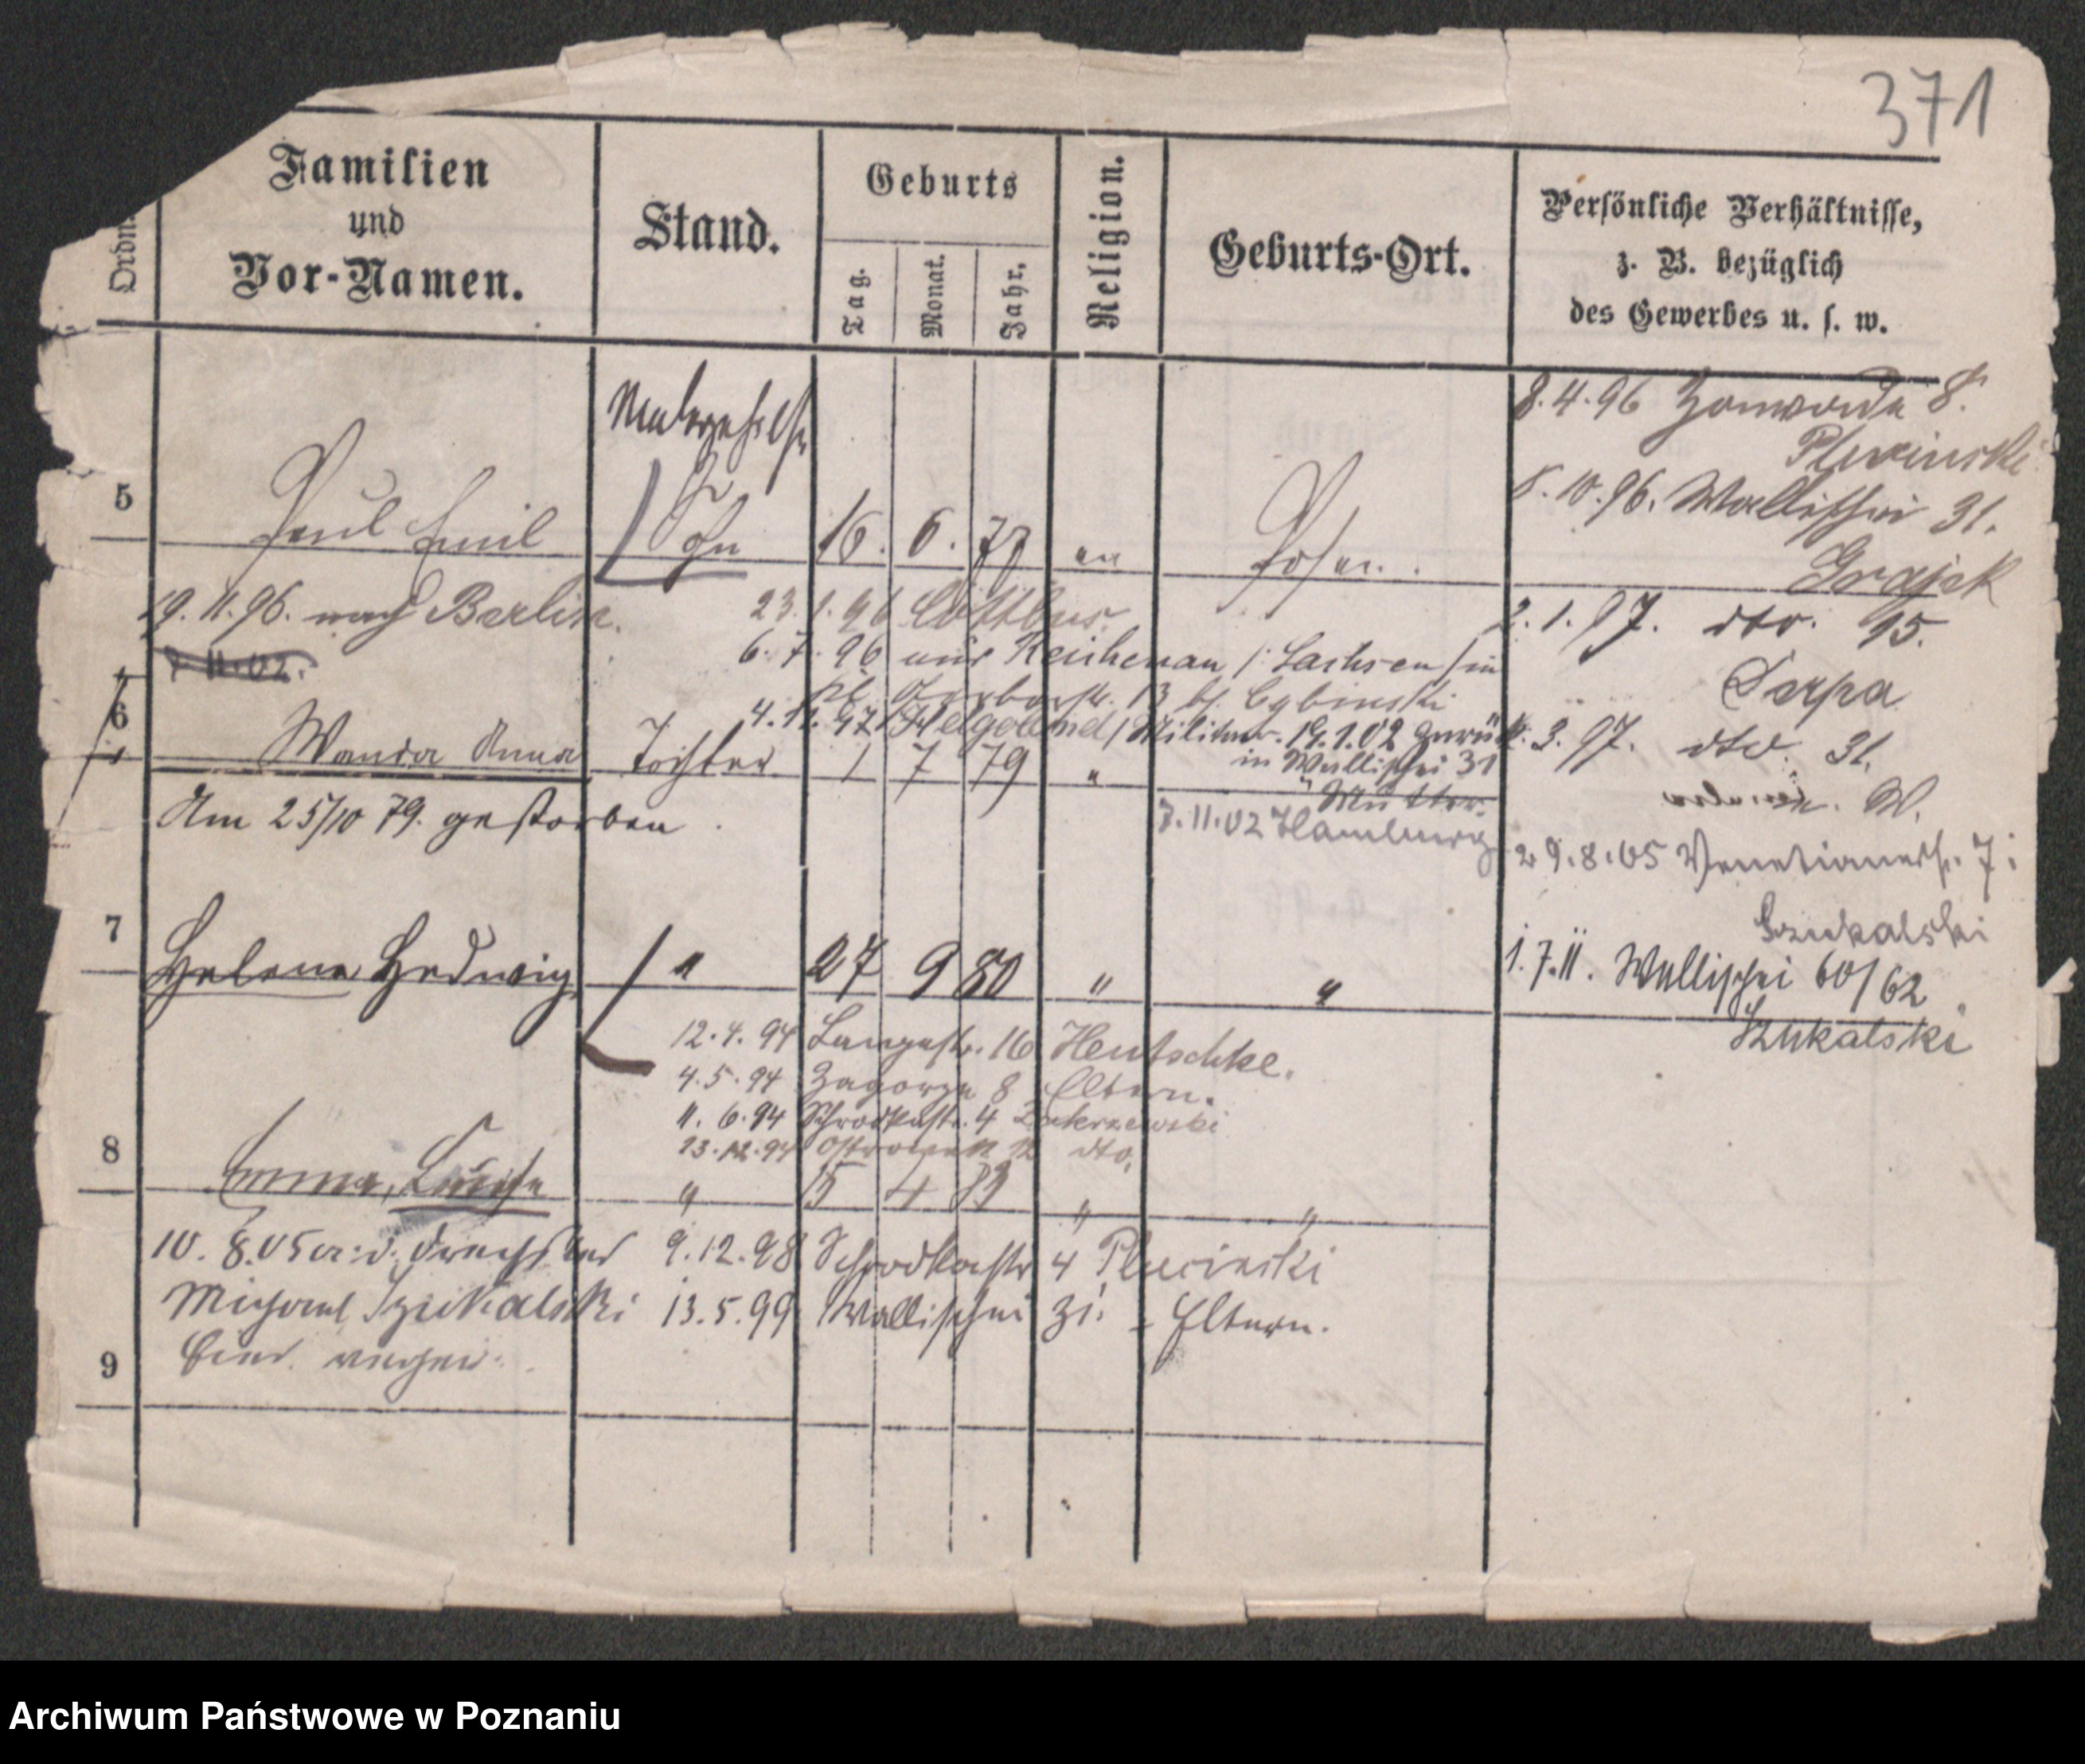 371
Ordn.
Familien
und
Vor-Namen.
Stand.
Geburts
Tag.
Monat.
Jahr.
Religion.
Geburts-Ort.
Persönliche Verhältnisse,
z. B. bezüglich
des Gewerbes u. s. w.
Malergehilfe
8.4.96 8.
8.10.96. Wallischei 31.
5 Paul Emil Sohn 16. 6. ev Posen.
19.11.96. nach Berlin.
23.1.96 Cottbus.
2.1.97. dto. 15.
Serpa
6.7.96 aus Reichenau /: Sachsen / in
13 bei Cybinski
4.11.97 Helgoland / Militär. 19.1.02 zurück
in Wallischei 31
Mutter.
3.97. dto. 31.
7.11.02.
6 Wanda Anna Tochter 1 7 79 "
Am 25/10 79. gestorben.
7.11.02 Hamburg
29.8.05 Venetianerstr. 7:
Szukalski
7 Helene Hedwig " 27 9 80 " "
1.7.11. Wallischei 60/62
Szukalski
12.4.94 Langestr. 16 Hentschke.
4.5.94 Zagorze 8 Eltern.
11.6.94 Schrodkastr. 4 Zakrzewski
23.12.94 Ostrowek 12 dto.
8 Emma, Luise " 15 4 83 " "
10.8.05
9.12.98 Schrodkastr 4 Plucinski
Szukalski
13.5.99 Wallischei 31. - Eltern.
9
Archiwum Państwowe w Poznaniu